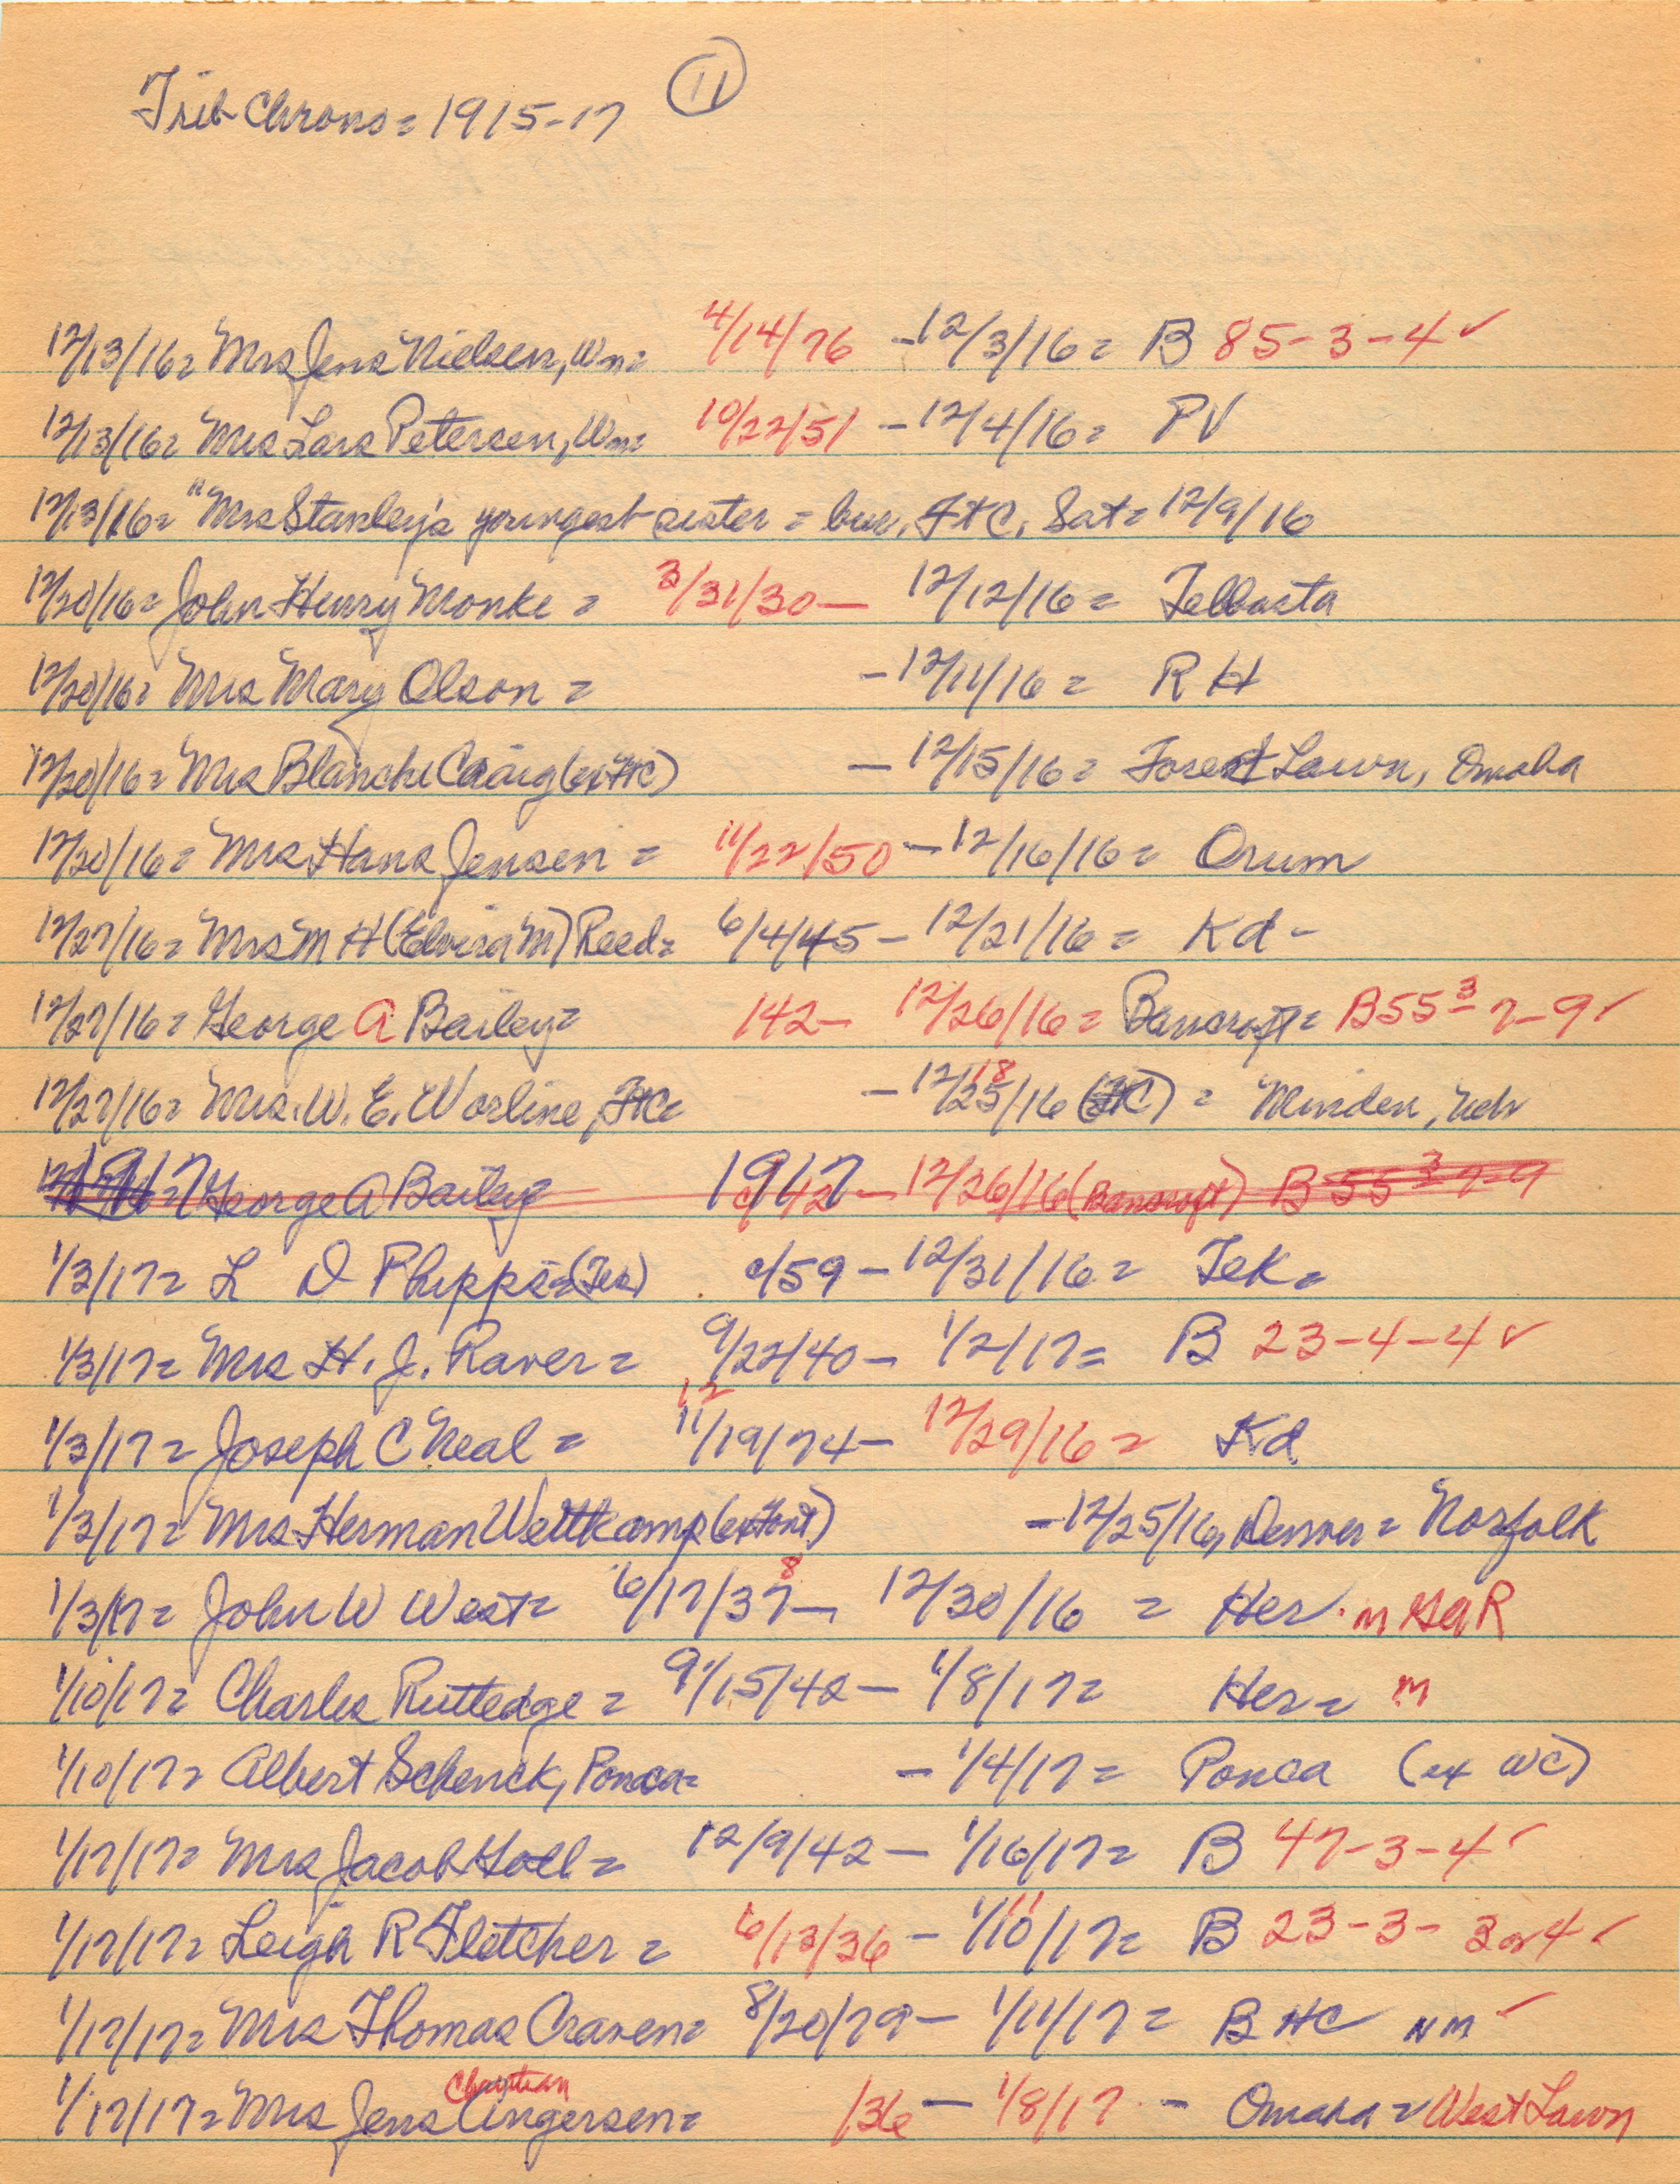 Trib Chrono = 1915-17 (11)
12/13/16 = Mrs Jens Nielsen, Wn = 4/14/76 - 12/3/16 = B 85-3-4 ✓
12/13/16 = Mrs Lars Petersen, Wn = 10/22/51 - 12/4/16 = PV
12/13/16 = "Mrs Stanley's youngest sister = bur. FtC, Sat = 12/9/16
12/20/16 = John Henry Monke = 3/31/30 - 12/12/16 = Telbasta
12/20/16 = Mrs Mary Olson = - 12/11/16 = R H
12/20/16 = Mrs Blanche Craig (ex FtC) - 12/15/16 = Forest Lawn, Omaha
12/20/16 = Mrs Hans Jensen = 11/22/50 - 12/16/16 = Orum
12/27/16 = Mrs M H (Elvira M) Reed = 6/4/45 - 12/21/16 = Kd -
12/27/16 = George A Bailey = 142 - 12/26/16 = Bancroft = B55 3 7-9 ✓
12/27/16 = Mrs. W. E. Worline, FtC = - 12/25/16 18 (FtC) = Minden, Neb
1917 George A Bailey 1917 c/42 - 12/26/16 (Bancroft) B 55 3 7-9
1/3/17 = L D Phipps = (Tek) c/59 - 12/31/16 = Tek =
1/3/17 = Mrs H. J. Raver = 9/22/40 - 1/2/17 = B 23-4-4 ✓
1/3/17 = Joseph C Neal = 12 11/19/74 - 12/29/16 = Kd
1/3/17 = Mrs Herman Weltkamp (ex Font) - 12/25/16, Denver = Norfolk
1/3/17 = John W West = 6/17/37 8 - 12/30/16 = Her. m GAR
1/10/17 = Charles Rutledge = 9/15/42 - 1/8/17 = Her = m
1/10/17 = Albert Schenck, Ponca = - 1/4/17 = Ponca (ex WC)
1/17/17 = Mrs Jacob Goll = 12/9/42 - 1/16/17 = B 47-3-4 ✓
1/17/17 = Leigh R Fletcher = 6/13/36 - 1/10/17 11 = B 23-3- 3 or 4 ✓
1/17/17 = Mrs Thomas Craven = 8/20/79 - 1/11/17 = B HC NM ✓
1/17/17 = Mrs Jens Christian Angersen = /36 - 1/8/17 - Omaha = West Lawn